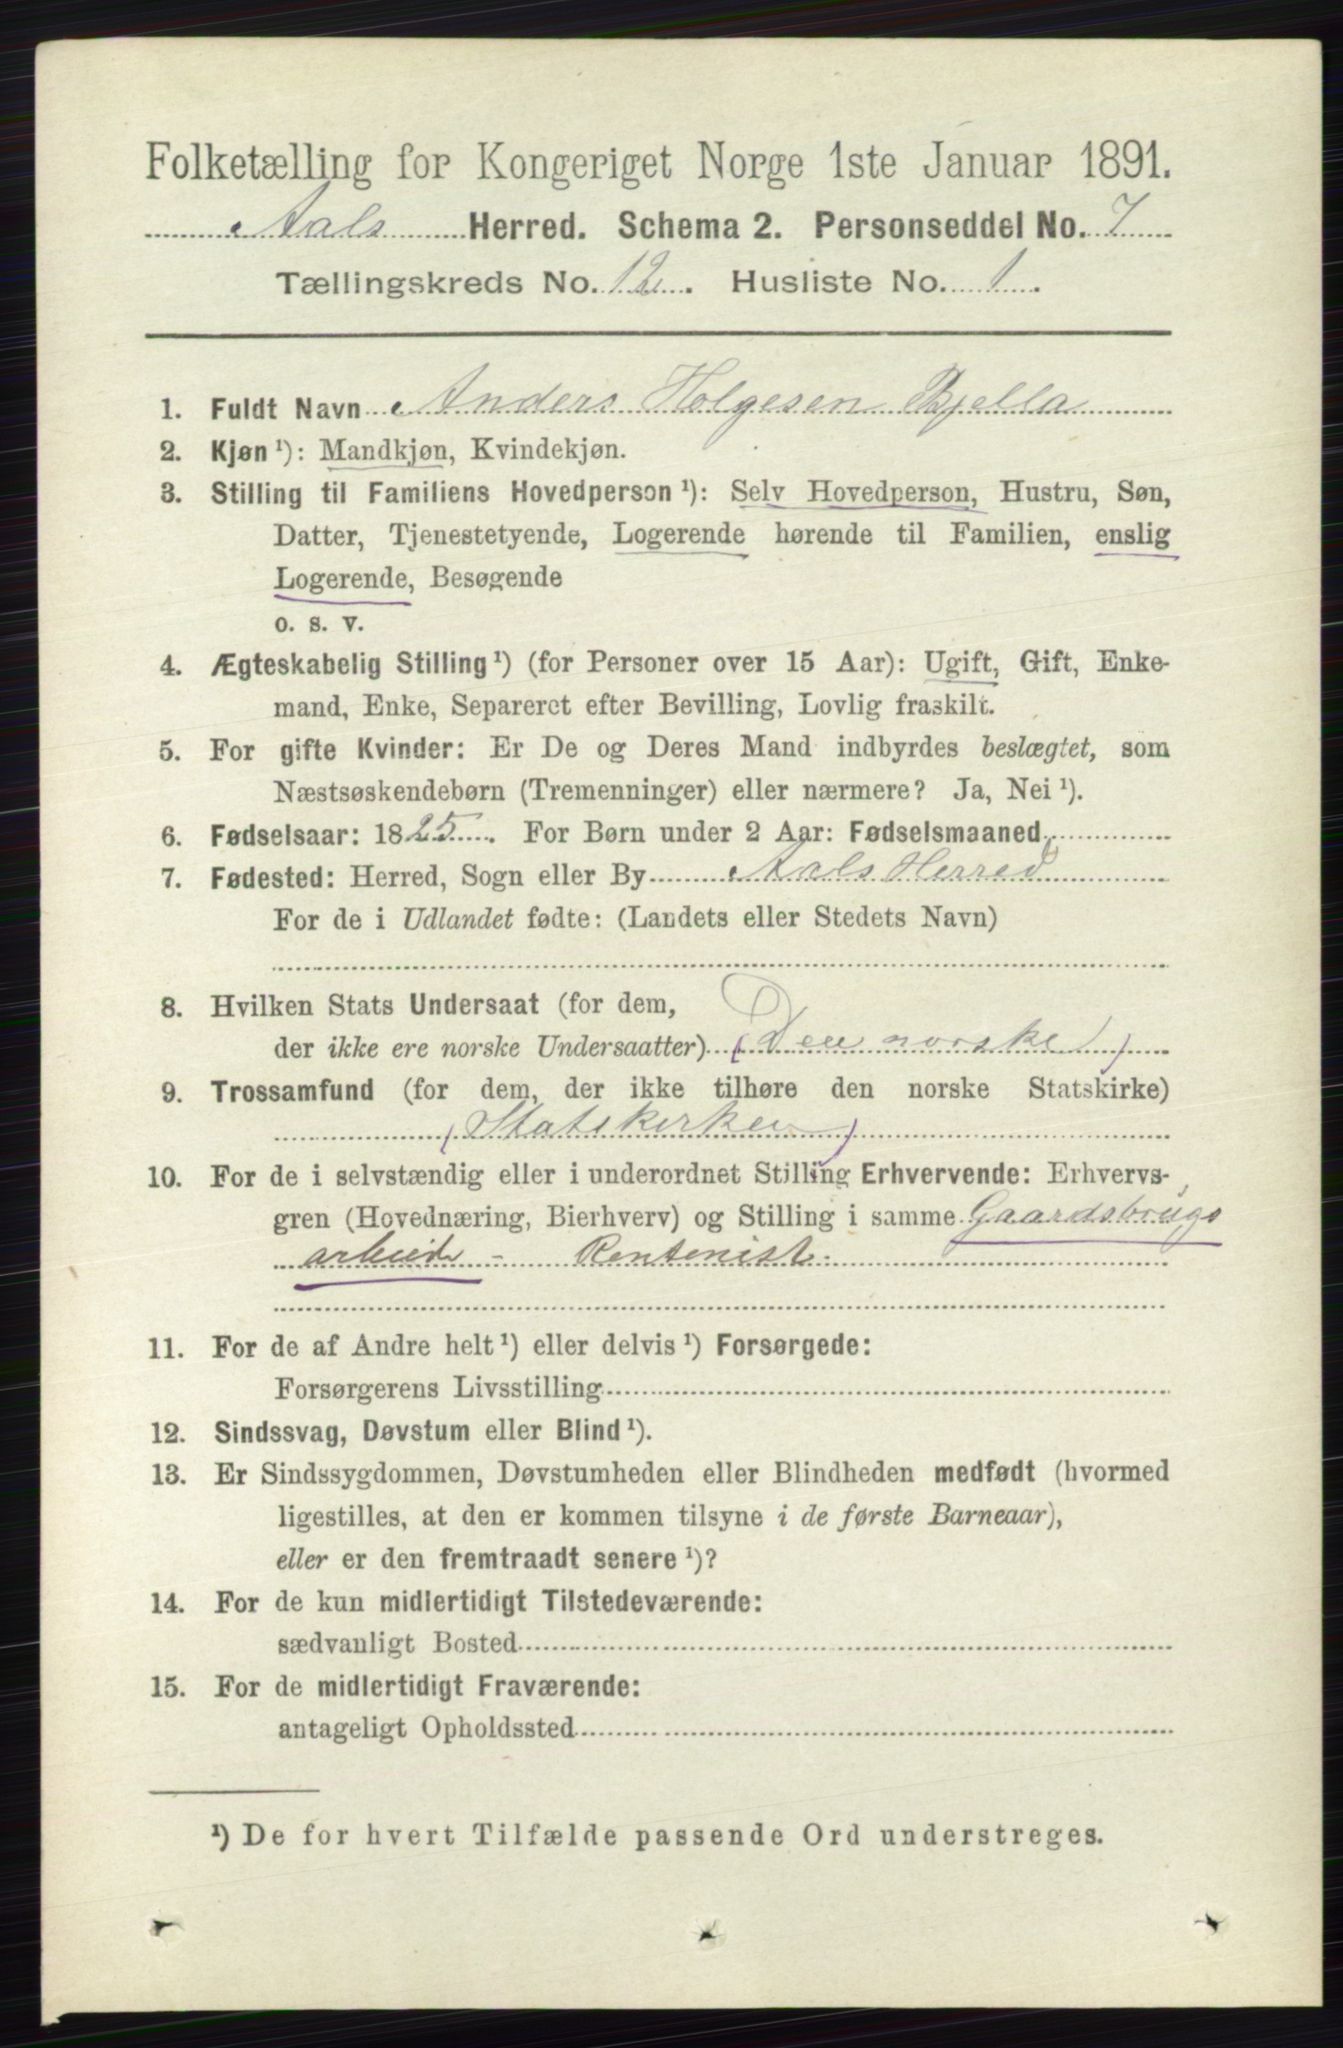 Folketælling for Kongeriget Norge 1ste Januar 1891.
Aals Herred. Schema 2. Personseddel No. 7
Tællingskreds No. 12. Husliste No. 1.
1. Fuldt Navn Anders Holgesen Bjella
2. Kjøn ¹): Mandkjøn, Kvindekjøn.
3. Stilling til Familiens Hovedperson ¹): Selv Hovedperson, Hustru, Søn,
Datter, Tjenestetyende, Logerende hørende til Familien, enslig
Logerende, Besøgende
o. s. v.
4. Ægteskabelig Stilling ¹) (for Personer over 15 Aar): Ugift, Gift, Enke-
mand, Enke, Separeret efter Bevilling, Lovlig fraskilt.
5. For gifte Kvinder: Er De og Deres Mand indbyrdes beslægtet, som
Næstsøskendebørn (Tremenninger) eller nærmere? Ja, Nei ¹).
6. Fødselsaar: 1825. For Børn under 2 Aar: Fødselsmaaned
7. Fødested: Herred, Sogn eller By Aals Herred
For de i Udlandet fødte: (Landets eller Stedets Navn)
8. Hvilken Stats Undersaat (for dem,
der ikke ere norske Undersaatter) (Den norske)
9. Trossamfund (for dem, der ikke tilhøre den norske Statskirke)
(Statskirken)
10. For de i selvstændig eller i underordnet Stilling Erhvervende: Erhvervs-
gren (Hovednæring, Bierhverv) og Stilling i samme Gaardsbrugs
arbeid - Rentenist.
11. For de af Andre helt ¹) eller delvis ¹) Forsørgede:
Forsørgerens Livsstilling
12. Sindssvag, Døvstum eller Blind ¹).
13. Er Sindssygdommen, Døvstumheden eller Blindheden medfødt (hvormed
ligestilles, at den er kommen tilsyne i de første Barneaar),
eller er den fremtraadt senere ¹)?
14. For de kun midlertidigt Tilstedeværende:
sædvanligt Bosted
15. For de midlertidigt Fraværende:
antageligt Opholdssted
¹) De for hvert Tilfælde passende Ord understreges.